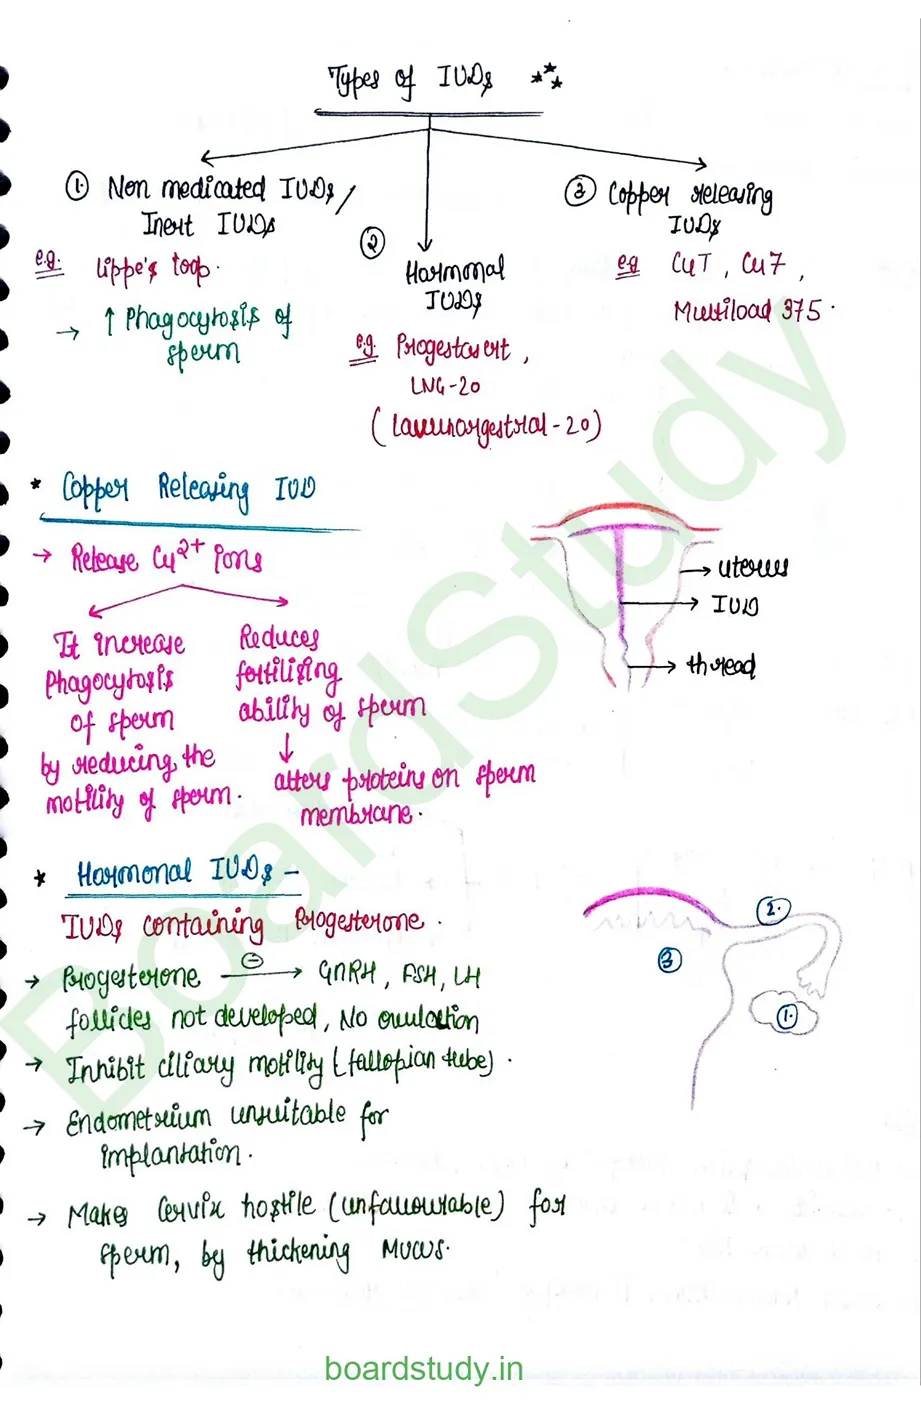 Types of IUDs
① Non medicated IUDs /
Inert IUDs
e.g. Lippe's loop.
→ ↑ Phagocytosis of
sperm
②
Hormonal
IUDs
e.g. Progestasert,
LNG-20
(Levonorgestral-20)
③ Copper releasing
IUDs
e.g CuT, Cu7,
Multiload 375.
* Copper Releasing IUD
→ Release Cu2+ ions
It increase
phagocytosis
of sperm
by reducing the
motility of sperm.
Reduces
fertilising
ability of sperm
↓
alters proteins on sperm
membrane.
→ uterus
→ IUD
→ thread
* Hormonal IUDs -
IUDs containing Progesterone.
→ Progesterone ⊖→ GnRH, FSH, LH
follicles not developed, No ovulation
→ Inhibit ciliary motility (fallopian tube).
→ Endometrium unsuitable for
implantation.
→ Makes Cervix hostile (unfavourable) for
sperm, by thickening Mucus.
2.
3
1.
BoardStudy
boardstudy.in